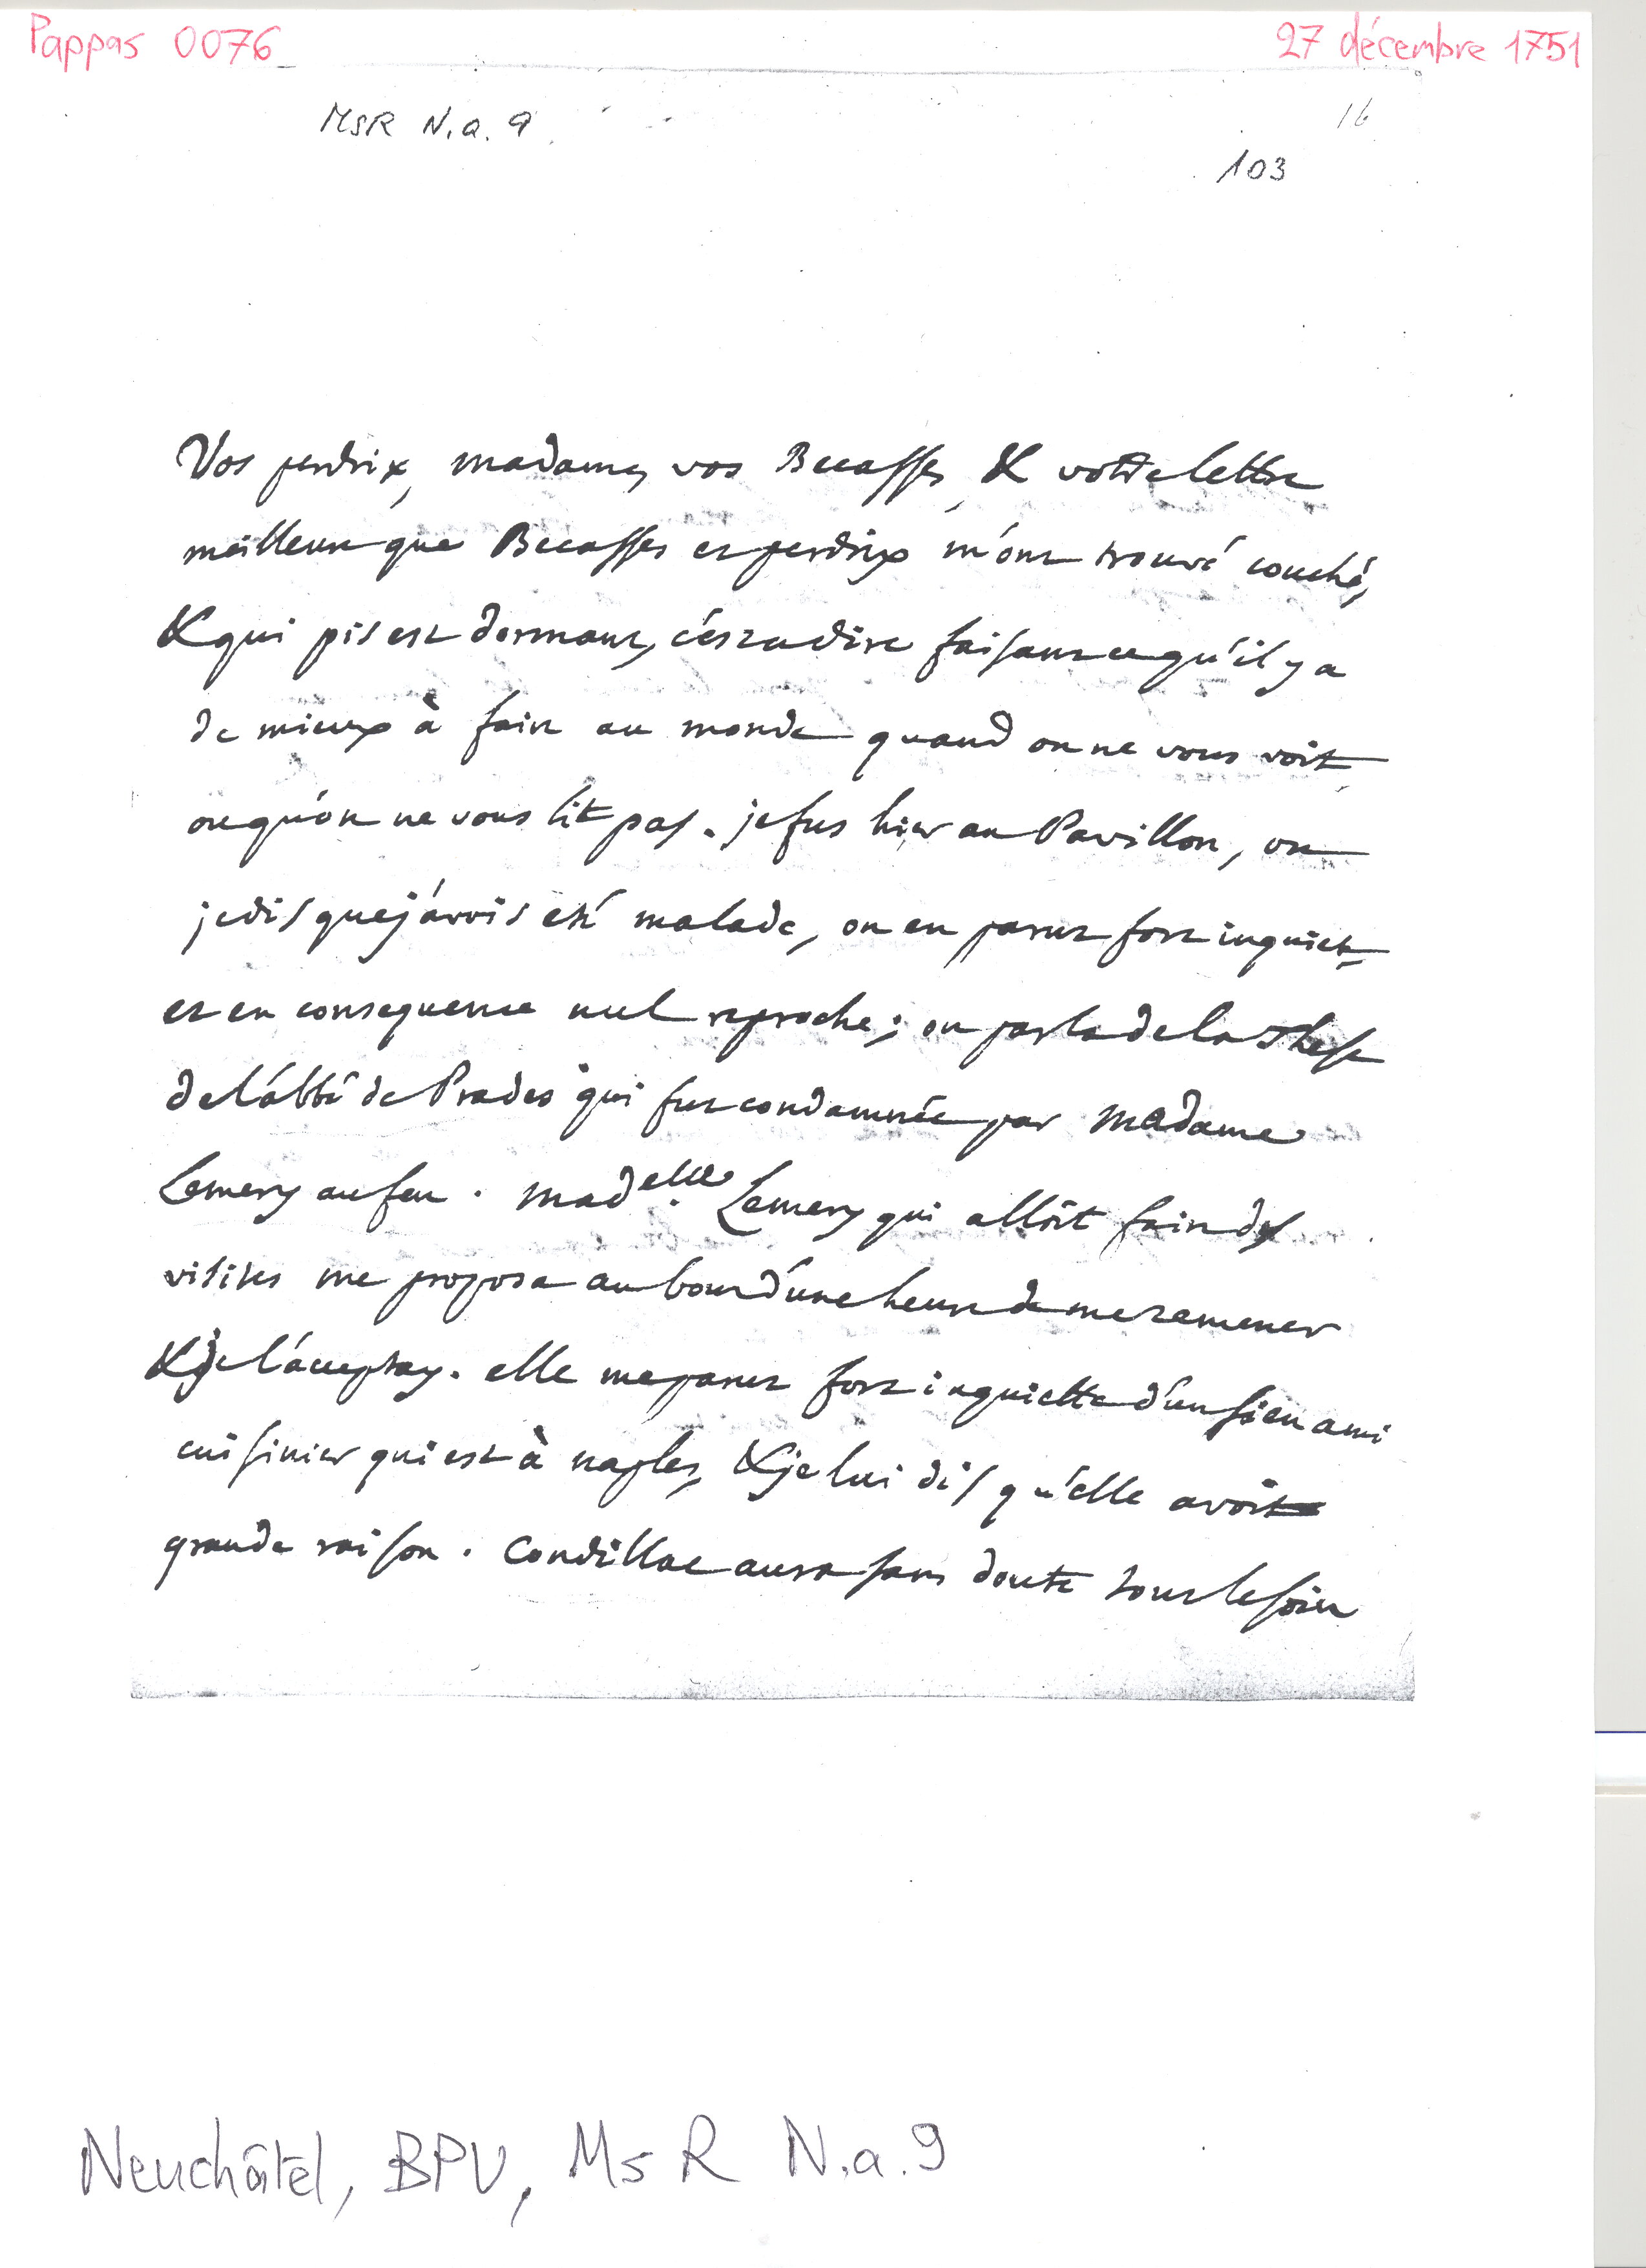 Pappas 0076
27 décembre 1751
MsR N.a. 9
16
103
Vos perdrix, madame, vos Becasses, & votre lettre
meilleure que Becasses et perdrix m'ont trouvé couché,
& qui pis est dormant, c'est a dire faisant ce qu'il y a
de mieux à faire au monde quand on ne vous voit
ou qu'on ne vous lit pas. je fus hier au Pavillon, ou
je dis que j'avois esté malade, on en parut fort inquiet,
et en consequence nul reproche; on parla de la These
de l'abbé de Prades qui fut condamnée par Madame
Lemery au feu. Mad.elle Lemery qui alloit faire des
visites me proposa au bout d'une heure de me ramener
& je l'acceptay. elle me parut fort inquiette d'un sien ami
cuisinier qui est à naples, & je lui dis qu'elle avoit
grande raison. Condillac aura sans doute tout le soin
Neuchâtel, BPU, Ms R N.a.9